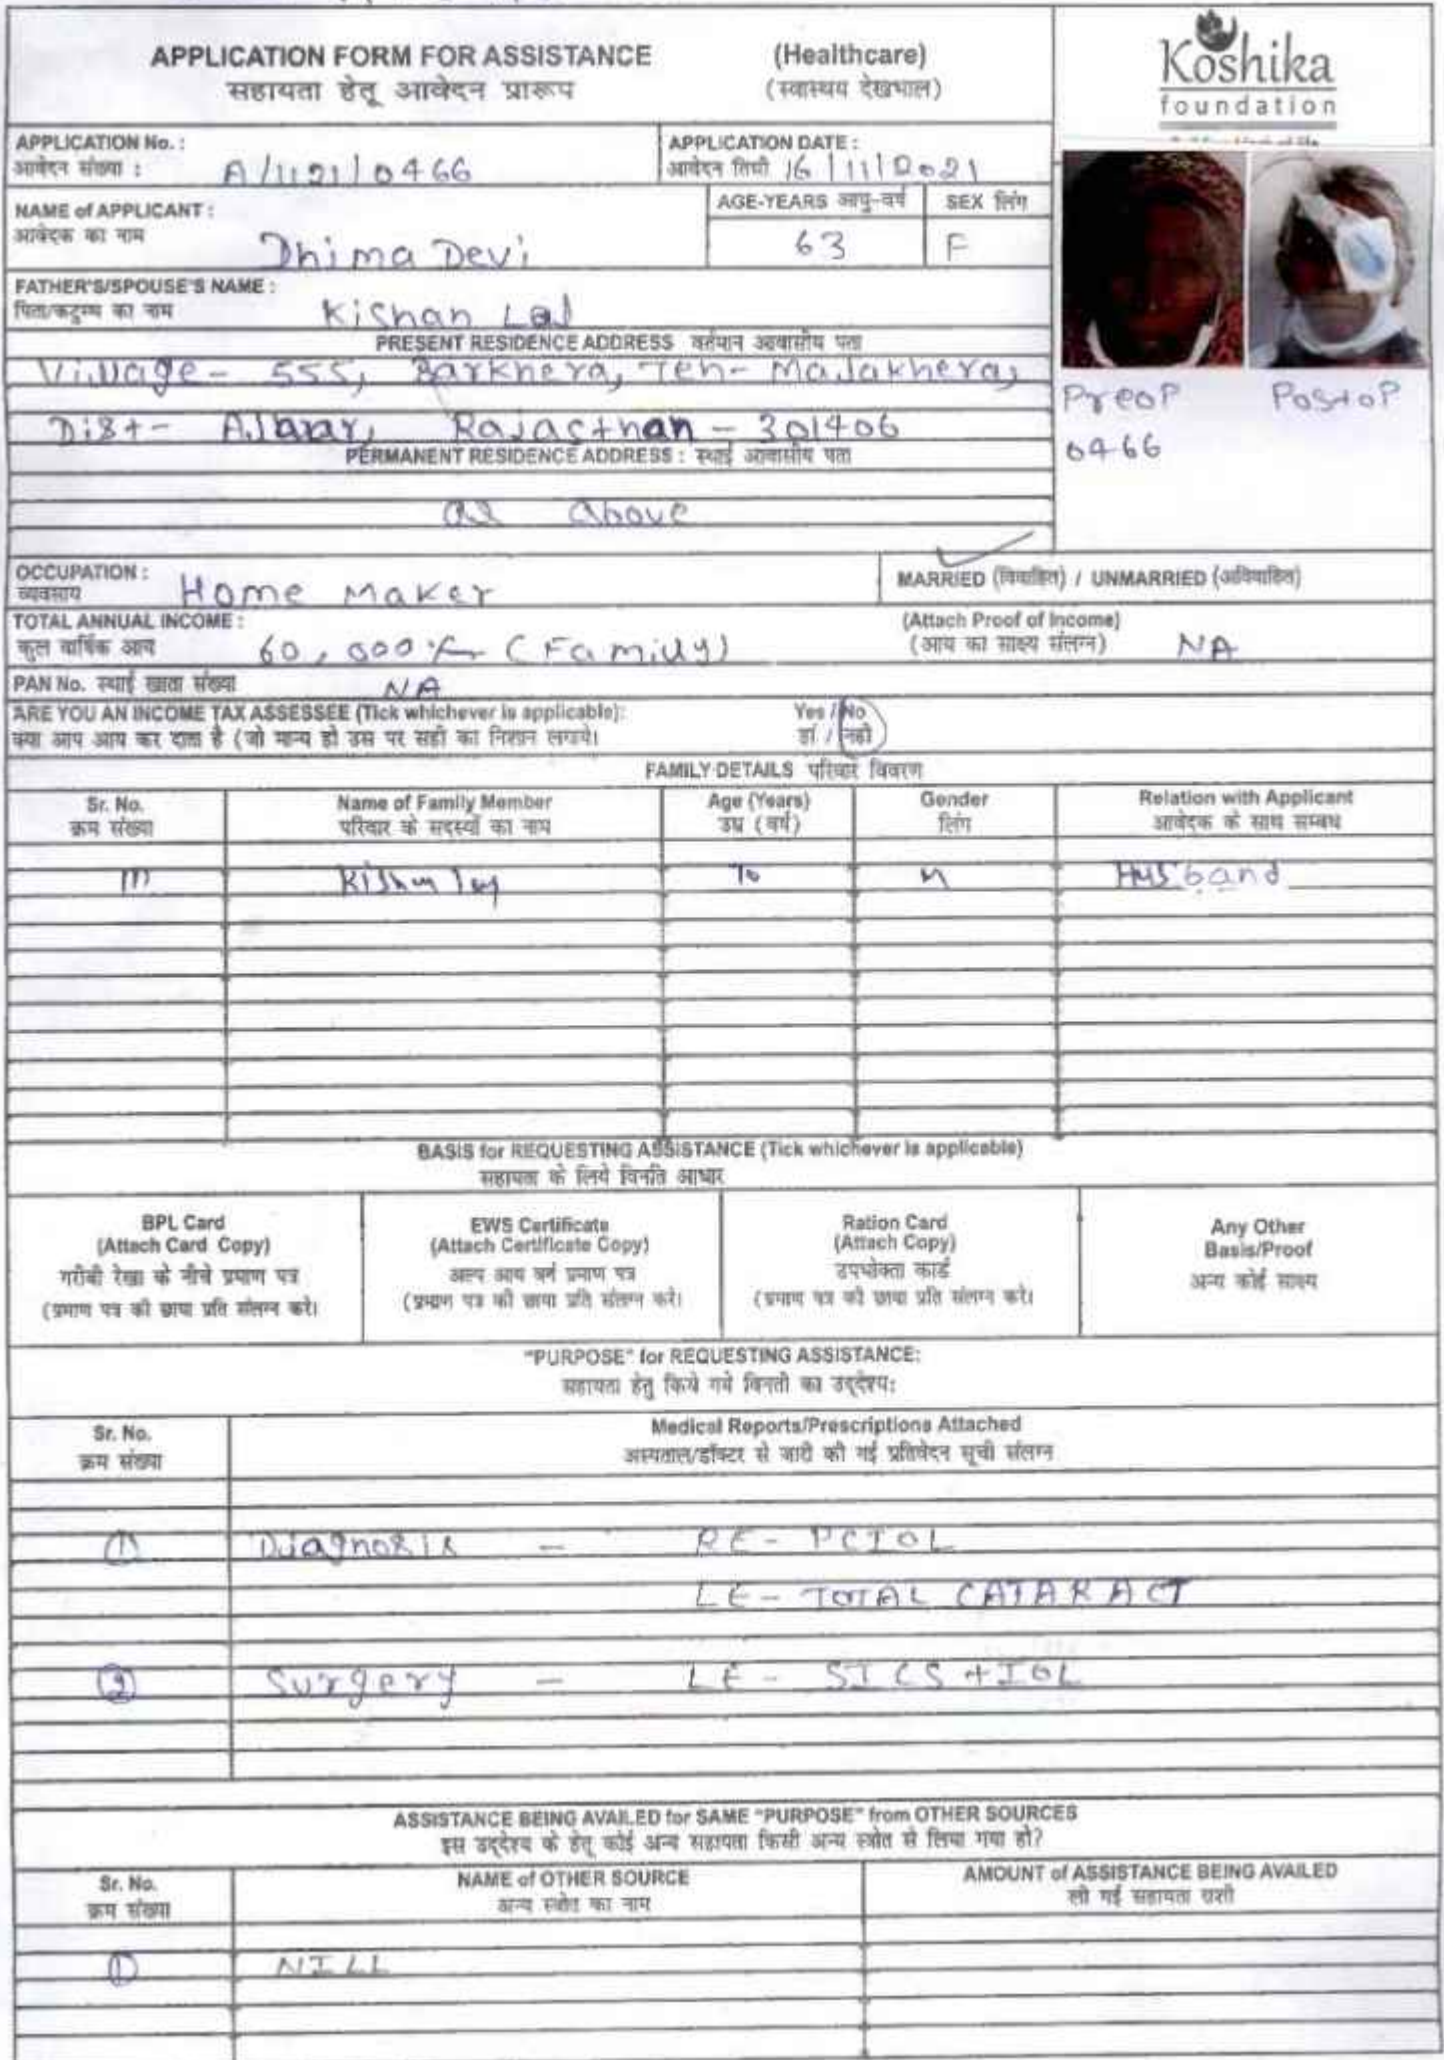 APPLICATION FORM FOR ASSISTANCE (Healthcare)
सहायता हेतू आवेदन प्रारूप (स्वास्थय देखभाल)
Koshika
foundation
APPLICATION No. :
आवेदन संख्या : A/1121/0466
APPLICATION DATE :
आवेदन तिथी 16/11/2021
NAME of APPLICANT :
आवेदक का नाम Dhima Devi
AGE-YEARS आयु-वर्ष 63
SEX लिंग F
FATHER'S/SPOUSE'S NAME :
पिता/कटुम्ब का नाम Kishan Lal
PRESENT RESIDENCE ADDRESS वर्तमान आवासीय पता
Village- 555, Barkhera, Teh- Malakhera,
Dist- Alwar, Rajasthan - 301406
PERMANENT RESIDENCE ADDRESS : स्थाई आवासीय पता
as above
Preop Postop
0466
OCCUPATION :
व्यवसाय Home Maker
MARRIED (विवाहित) / UNMARRIED (अविवाहित)
TOTAL ANNUAL INCOME :
कुल वार्षिक आय 60,000/- (Family)
(Attach Proof of Income)
(आय का साक्ष्य संलग्न) NA
PAN No. स्थाई खाता संख्या NA
ARE YOU AN INCOME TAX ASSESSEE (Tick whichever is applicable): Yes / No
क्या आप आय कर दाता है (जो मान्य हो उस पर सही का निशान लगाये। हां / नही
FAMILY DETAILS परिवार विवरण
Sr. No. Name of Family Member Age (Years) Gender Relation with Applicant
क्रम संख्या परिवार के सदस्यों का नाम उम्र (वर्ष) लिंग आवेदक के साथ सम्बध
Kishan Lal 70 M Husband
BASIS for REQUESTING ASSISTANCE (Tick whichever is applicable)
सहायता के लिये विनति आधार
BPL Card
(Attach Card Copy)
गरीबी रेखा के नीचे प्रमाण पत्र
(प्रमाण पत्र की छाया प्रति संलग्न करे।
EWS Certificate
(Attach Certificate Copy)
अल्प आय वर्ग प्रमाण पत्र
(प्रमाण पत्र की छाया प्रति संलग्न करे।
Ration Card
(Attach Copy)
उपभोक्ता कार्ड
(प्रमाण पत्र की छाया प्रति संलग्न करे।
Any Other
Basis/Proof
अन्य कोई साक्ष्य
"PURPOSE" for REQUESTING ASSISTANCE:
सहायता हेतु किये गये विनती का उद्देश्य:
Sr. No. Medical Reports/Prescriptions Attached
क्रम संख्या अस्पताल/डॉक्टर से जारी की गई प्रतिवेदन सूची संलग्न
① Diagnosis - RE- PCIOL
LE- TOTAL CATARACT
② Surgery - LE - SICS + IOL
ASSISTANCE BEING AVAILED for SAME "PURPOSE" from OTHER SOURCES
इस उद्देश्य के हेतू कोई अन्य सहायता किसी अन्य स्त्रोत से लिया गया हो?
Sr. No. NAME of OTHER SOURCE AMOUNT of ASSISTANCE BEING AVAILED
क्रम संख्या अन्य स्त्रोत का नाम ली गई सहायता राशी
① NILL